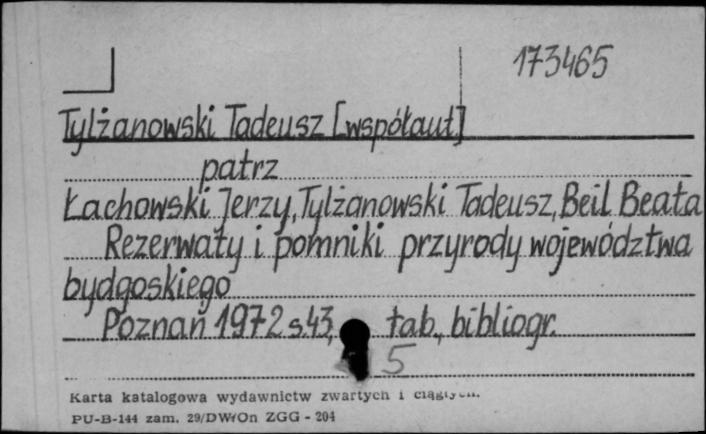 173465
Tylżanowski Tadeusz [współaut]
patrz
Łachowski Jerzy, Tylżanowski Tadeusz, Beil Beata
Rezerwaty i pomniki przyrody województwa
bydgoskiego
Poznań 1972 s.43, tab., bibliogr.
5
Karta katalogowa wydawnictw zwartych i ciągłych.
PU-B-144 zam. 29/DWiOn ZGG - 204